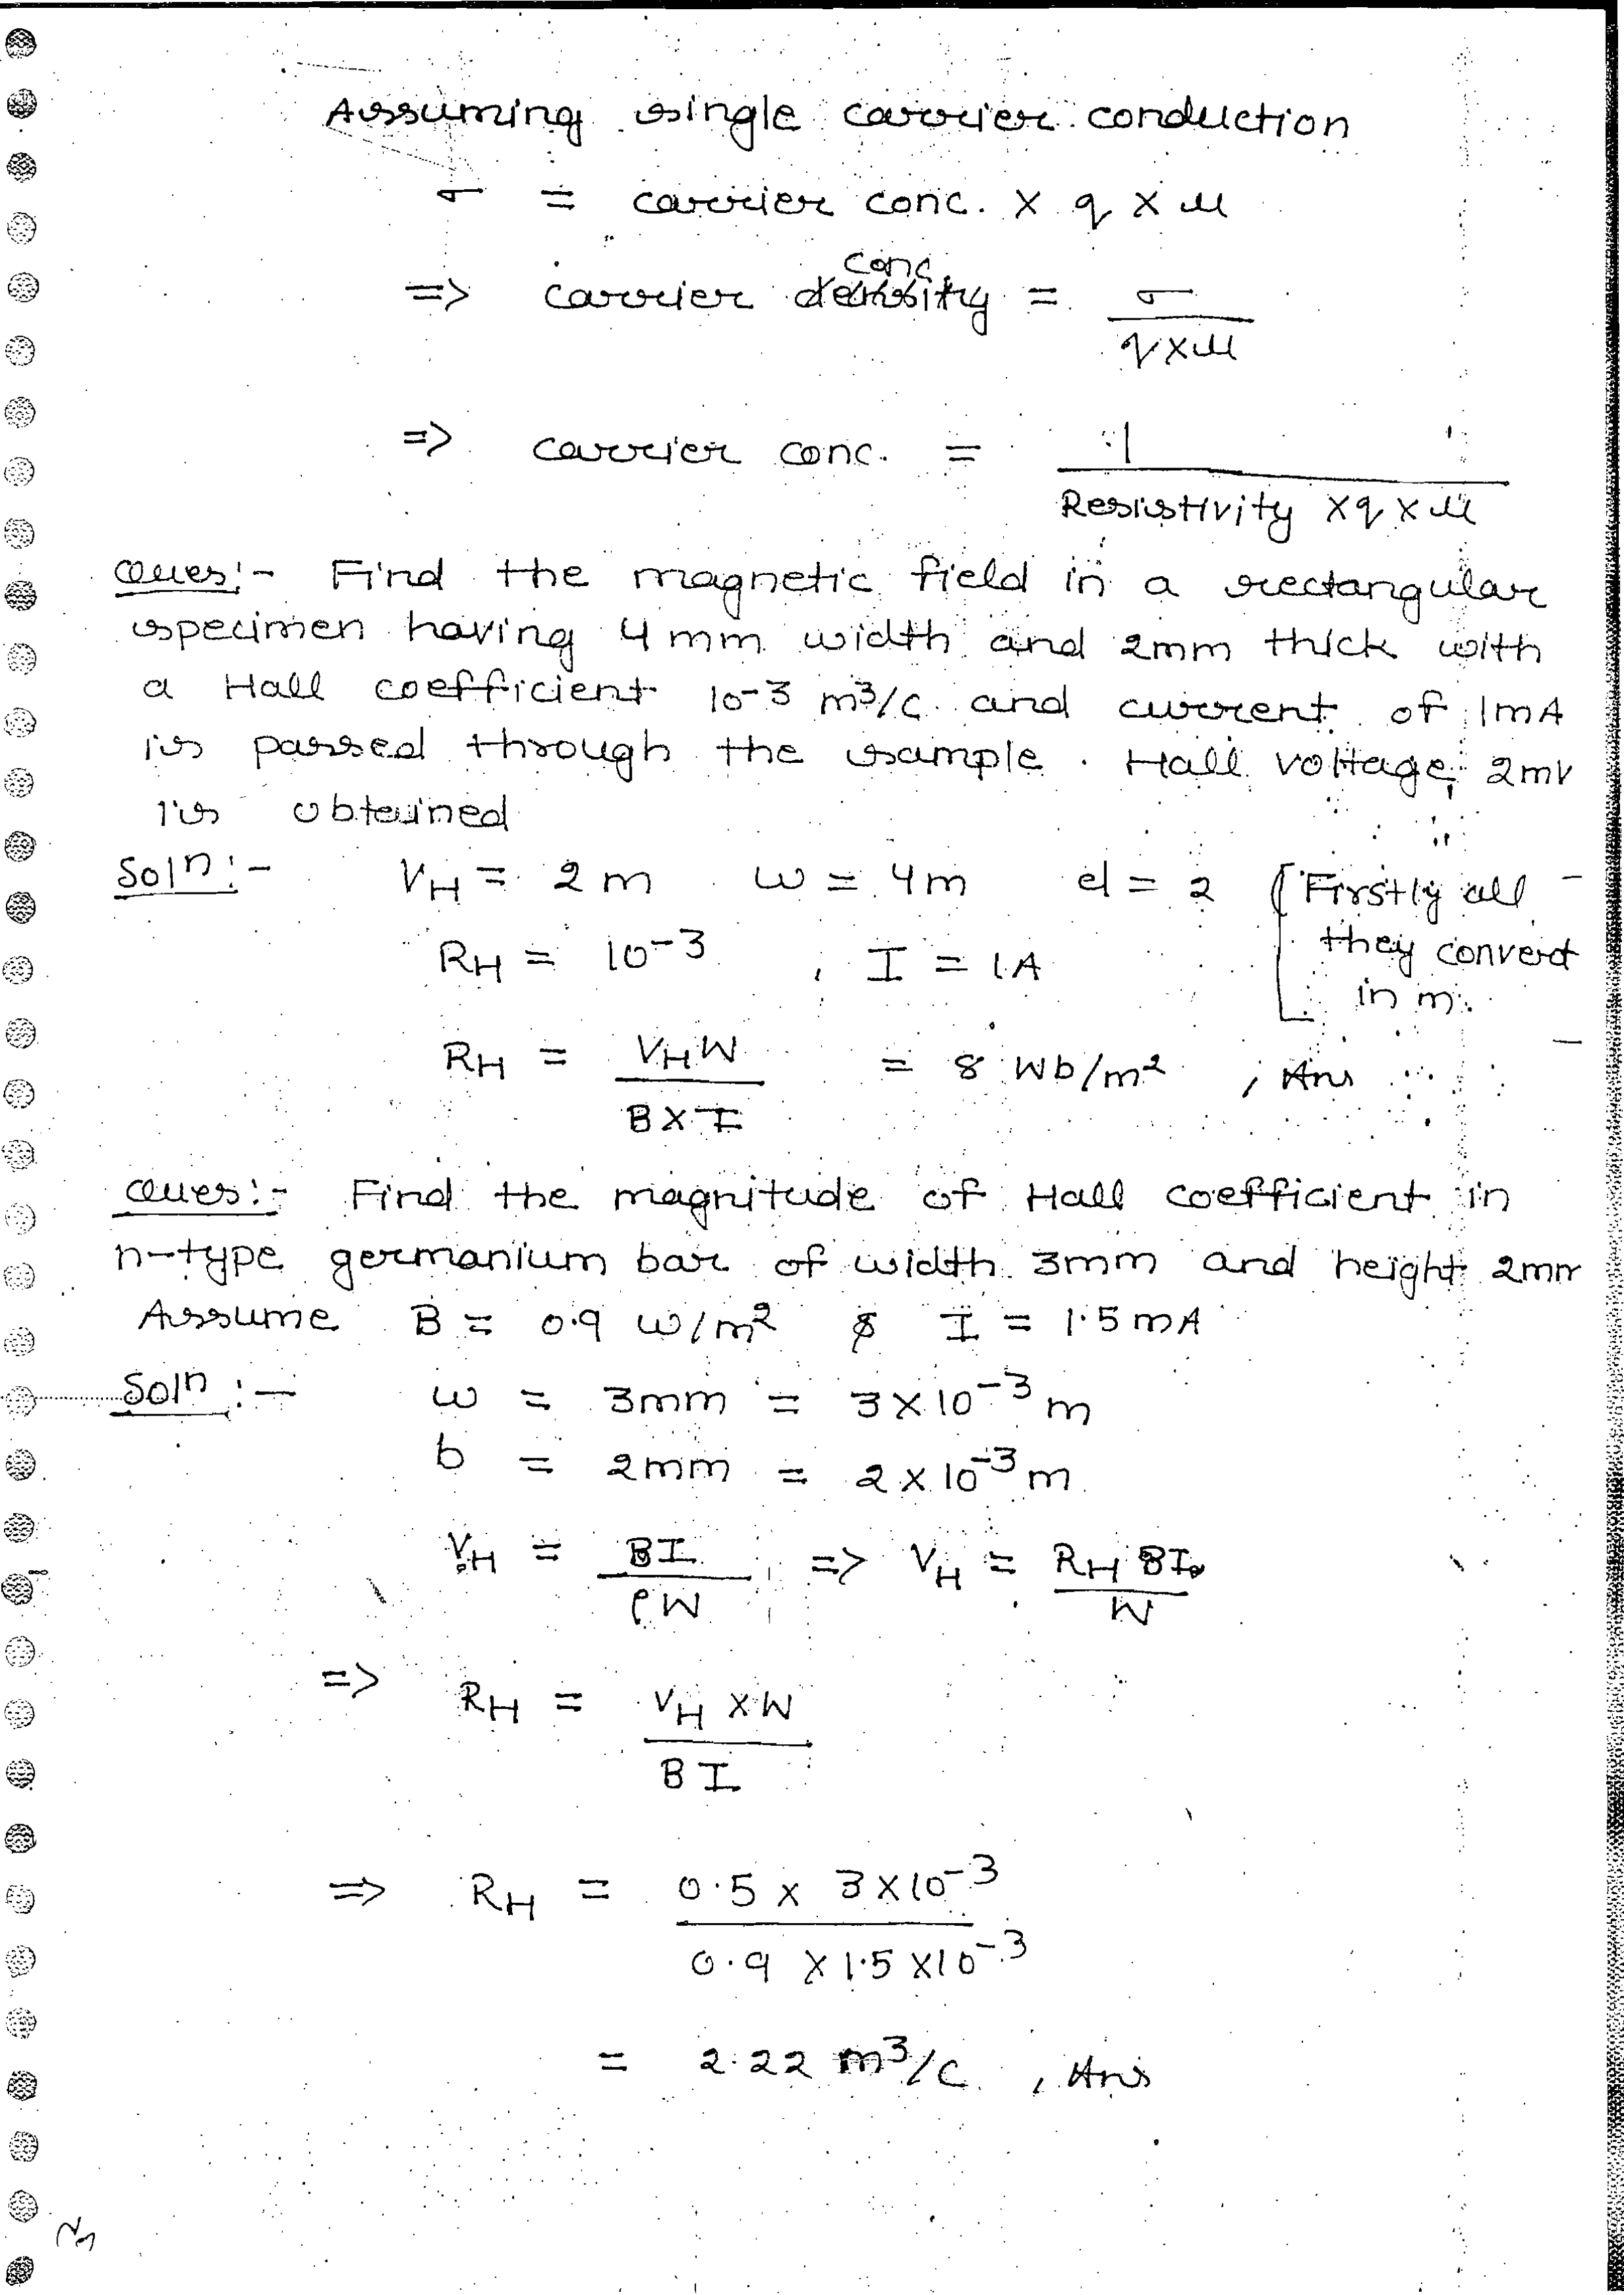 Assuming single carrier conduction
σ = carrier conc. × q × μ
conc.
=> carrier density = σ / q×μ
=> carrier conc. = 1 / Resistivity × q × μ
Ques:- Find the magnetic field in a rectangular
specimen having 4mm width and 2mm thick with
a Hall coefficient 10⁻³ m³/C and current of 1mA
is passed through the sample. Hall voltage 2mV
is obtained
Solⁿ:- V_H = 2m w = 4m d = 2 [Firstly all
they convert
in m.
R_H = 10⁻³, I = 1A
R_H = V_H W / B×I = 8 Wb/m², Ans
Ques:- Find the magnitude of Hall coefficient in
n-type germanium bar of width 3mm and height 2mm
Assume B = 0.9 w/m² & I = 1.5mA
Solⁿ:- w = 3mm = 3×10⁻³ m
b = 2mm = 2×10⁻³ m
V_H = BI / ρW => V_H = R_H BI / W
=> R_H = V_H × W / BI
=> R_H = 0.5 × 3×10⁻³ / 0.9 × 1.5 × 10⁻³
= 2.22 m³/C, Ans